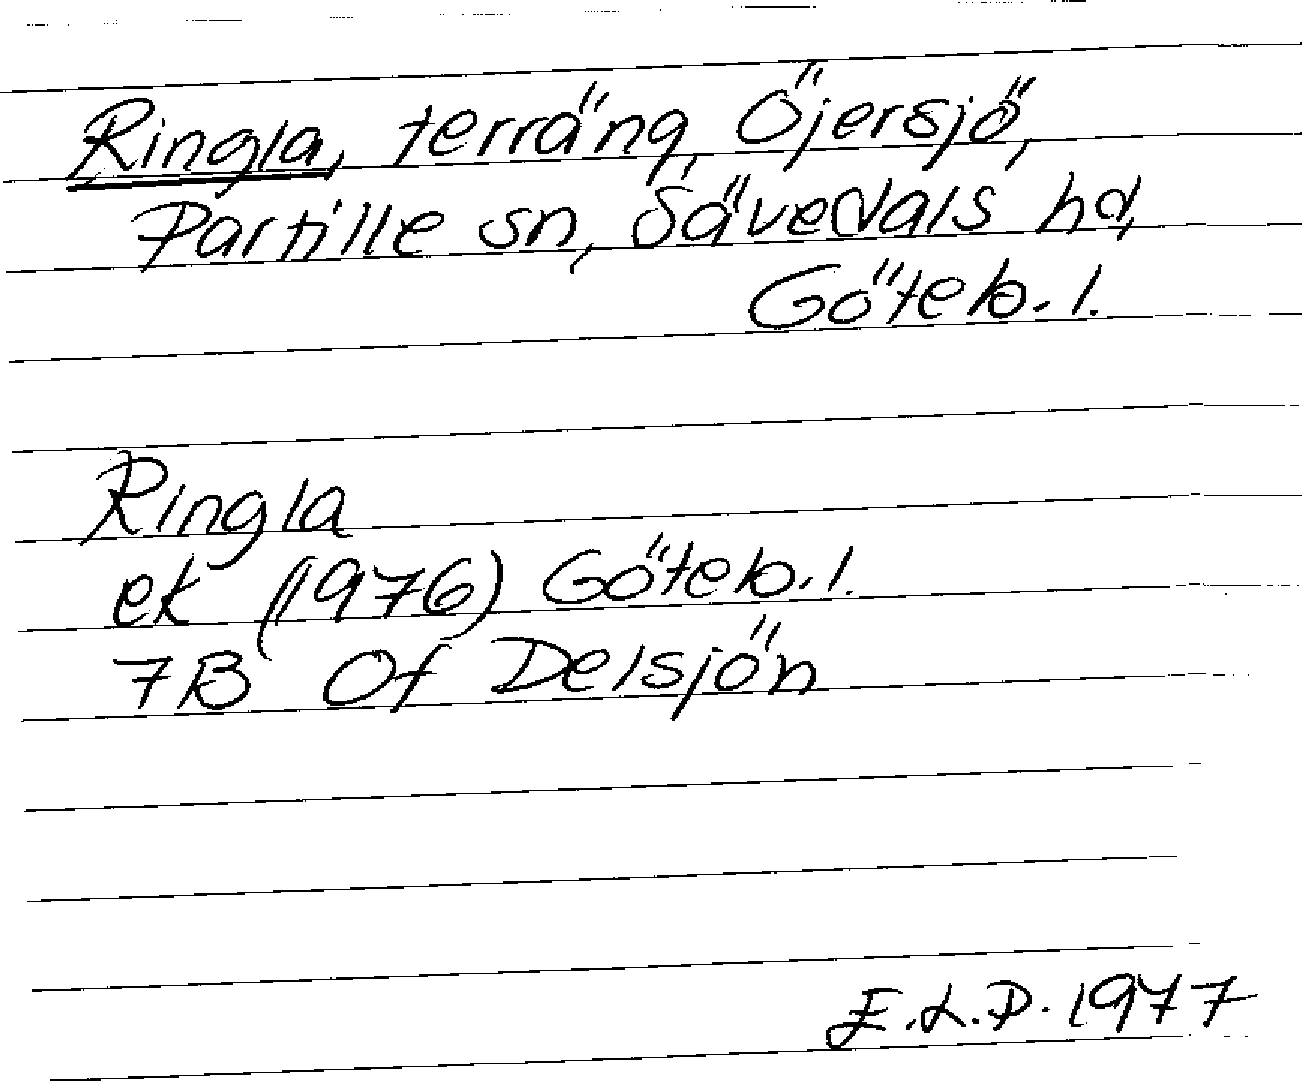 Ringla, terräng, Öjersjö,
Partille sn, Sävedals hd,
Göteb. l.
Ringla
ek (1976) Göteb. l.
7B 0f Delsjön
E.L.P. 1977